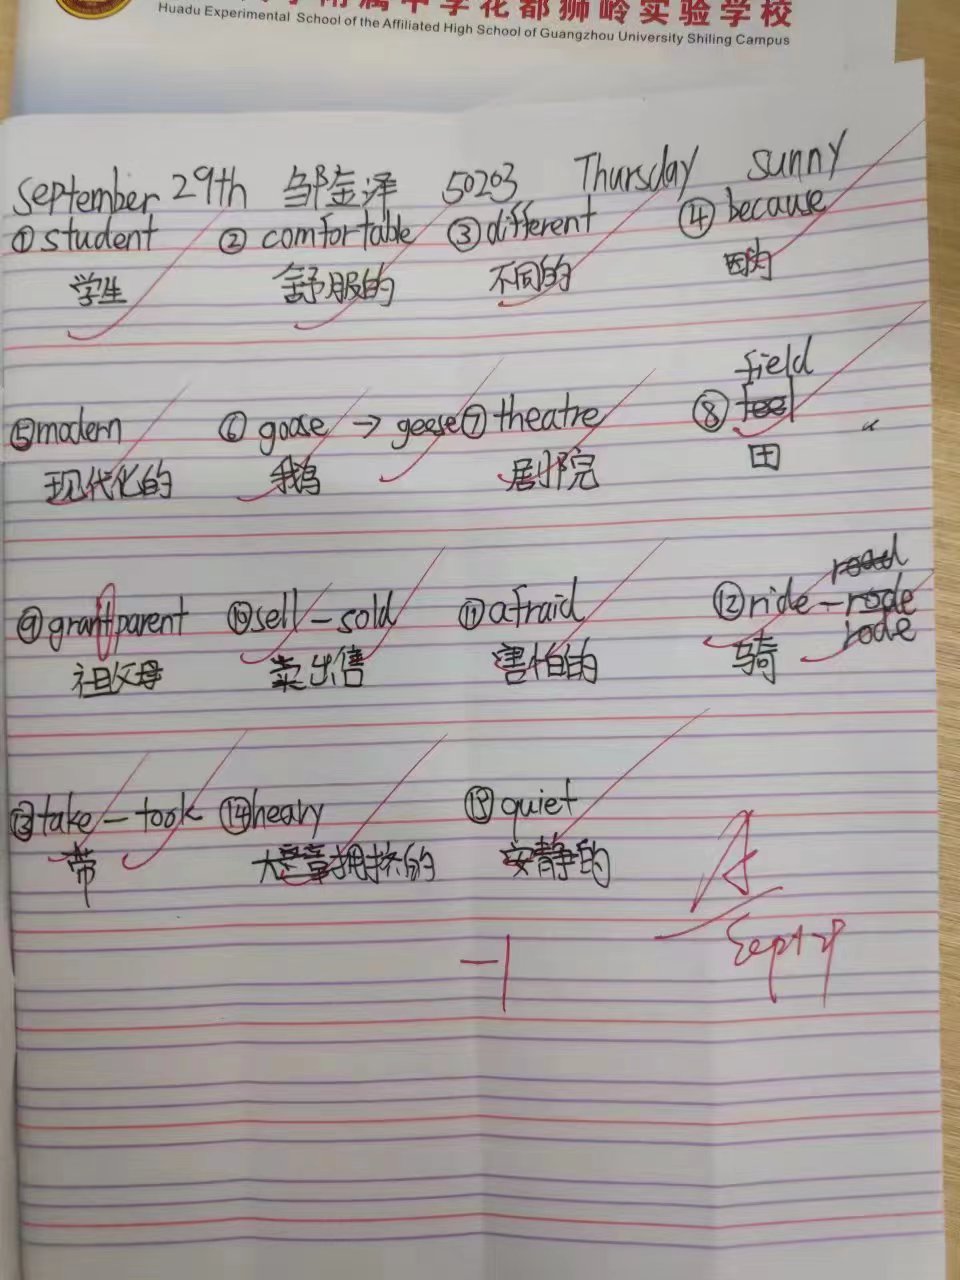 中学花都狮岭实验学校
Huadu Experimental School of the Affiliated High School of Guangzhou University Shiling Campus
September 29th 邹金泽 50203 Thursday sunny
① student ② comfortable ③ different ④ because
学生 舒服的 不同的 因为
field
⑤ modern ⑥ goose → geese ⑦ theatre ⑧
现代化的 鹅 剧院 田
road
⑨ grantparent ⑩ sell - sold ⑪ afraid ⑫ ride - rode
rode
祖父母 卖出售 害怕的 骑
⑬ take - took ⑭ heavy ⑮ quiet
带 大量拥挤的 安静的
A
-1
Sept 29